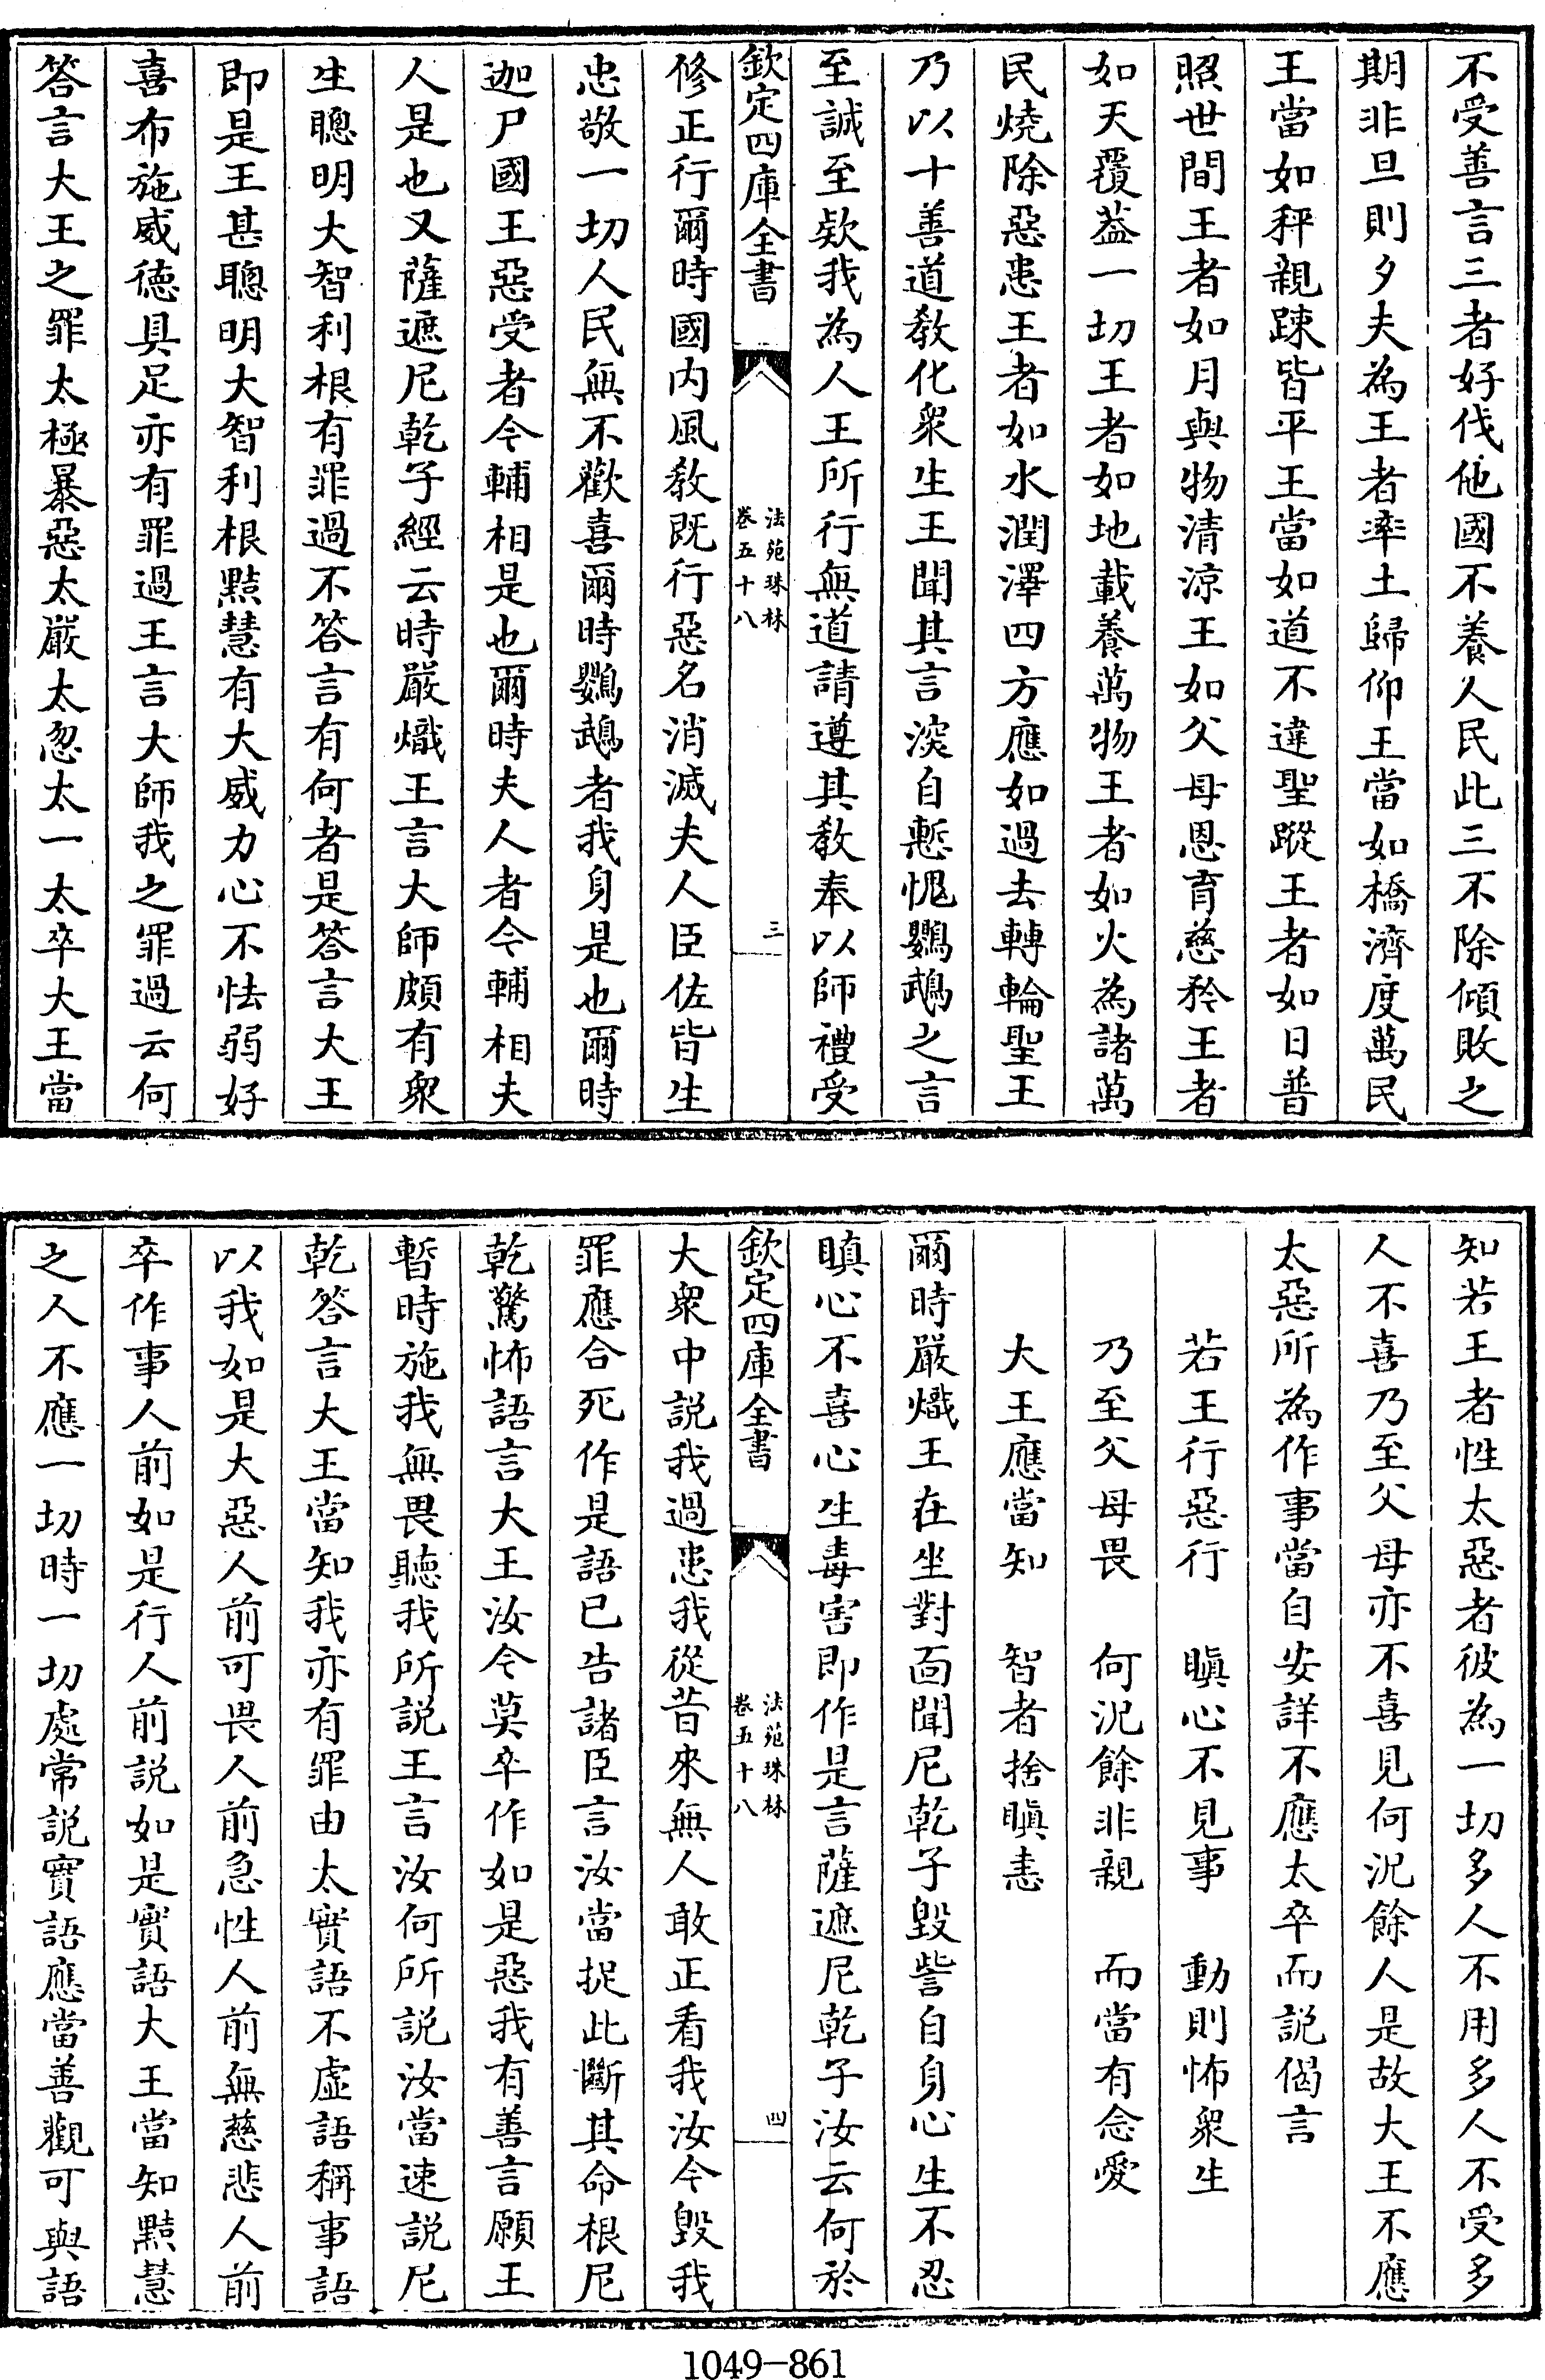 不受善言三者好伐他國不養人民此三不除傾敗之
期非旦則夕夫為王者率土歸仰王當如橋濟度萬民
王當如秤親踈皆平王當如道不違聖蹤王者如日普
照世間王者如月與物清涼王如父母恩育慈矜王者
如天覆葢一切王者如地載養萬物王者如火為諸萬
民燒除惡患王者如水潤澤四方應如過去轉輪聖王
乃以十善道教化衆生王聞其言深自慙愧鸚鵡之言
至誠至欵我為人王所行無道請遵其教奉以師禮受
欽定四庫全書
法苑珠林
卷五十八
三
修正行爾時國内風教既行惡名消滅夫人臣佐皆生
忠敬一切人民無不歡喜爾時鸚鵡者我身是也爾時
迦尸國王惡受者今輔相是也爾時夫人者今輔相夫
人是也又薩遮尼乾子經云時嚴熾王言大師頗有衆
生聰明大智利根有罪過不答言有何者是答言大王
即是王甚聰明大智利根黠慧有大威力心不怯弱好
喜布施威德具足亦有罪過王言大師我之罪過云何
答言大王之罪太極暴惡太嚴太忽太一太卒大王當
知若王者性太惡者彼為一切多人不用多人不受多
人不喜乃至父母亦不喜見何況餘人是故大王不應
太惡所為作事當自安詳不應太卒而説偈言
若王行惡行 瞋心不見事 動則怖衆生
乃至父母畏 何況餘非親 而當有念愛
大王應當知 智者捨瞋恚
爾時嚴熾王在坐對面聞尼乾子毀訾自身心生不忍
瞋心不喜心生毒害即作是言薩遮尼乾子汝云何於
欽定四庫全書
法苑珠林
卷五十八
四
大衆中説我過患我從昔來無人敢正看我汝今毀我
罪應合死作是語已告諸臣言汝當捉此斷其命根尼
乾驚怖語言大王汝今莫卒作如是惡我有善言願王
暫時施我無畏聽我所説王言汝何所説汝當速説尼
乾答言大王當知我亦有罪由太實語不虚語稱事語
以我如是大惡人前可畏人前急性人前無慈悲人前
卒作事人前如是行人前説如是實語大王當知黠慧
之人不應一切時一切處常説實語應當善觀可與語
1049-861